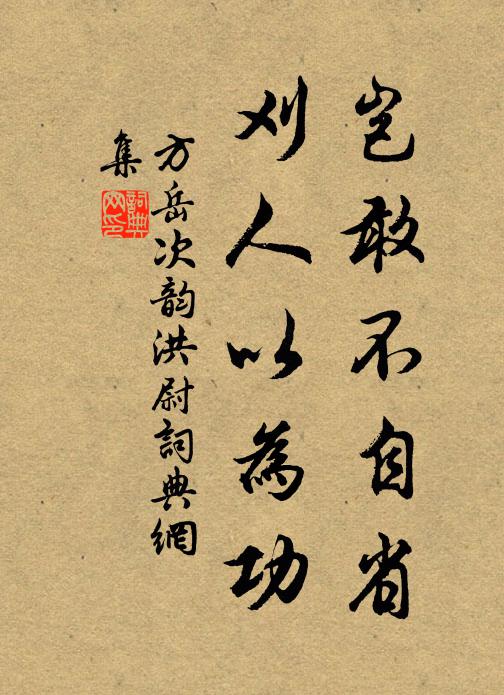 岂敢不自省
刈人以為功
方岳次韵洪尉詞典網
集
詞典
网印